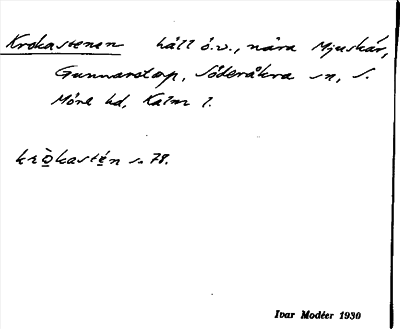 Krokastenen häll ö.v., nära Mjuskär,
Gunnarstorp, Söderåkra sn, S.
Möre hd, Kalm l.
kròkastén s. 78.
Ivar Modéer 1930